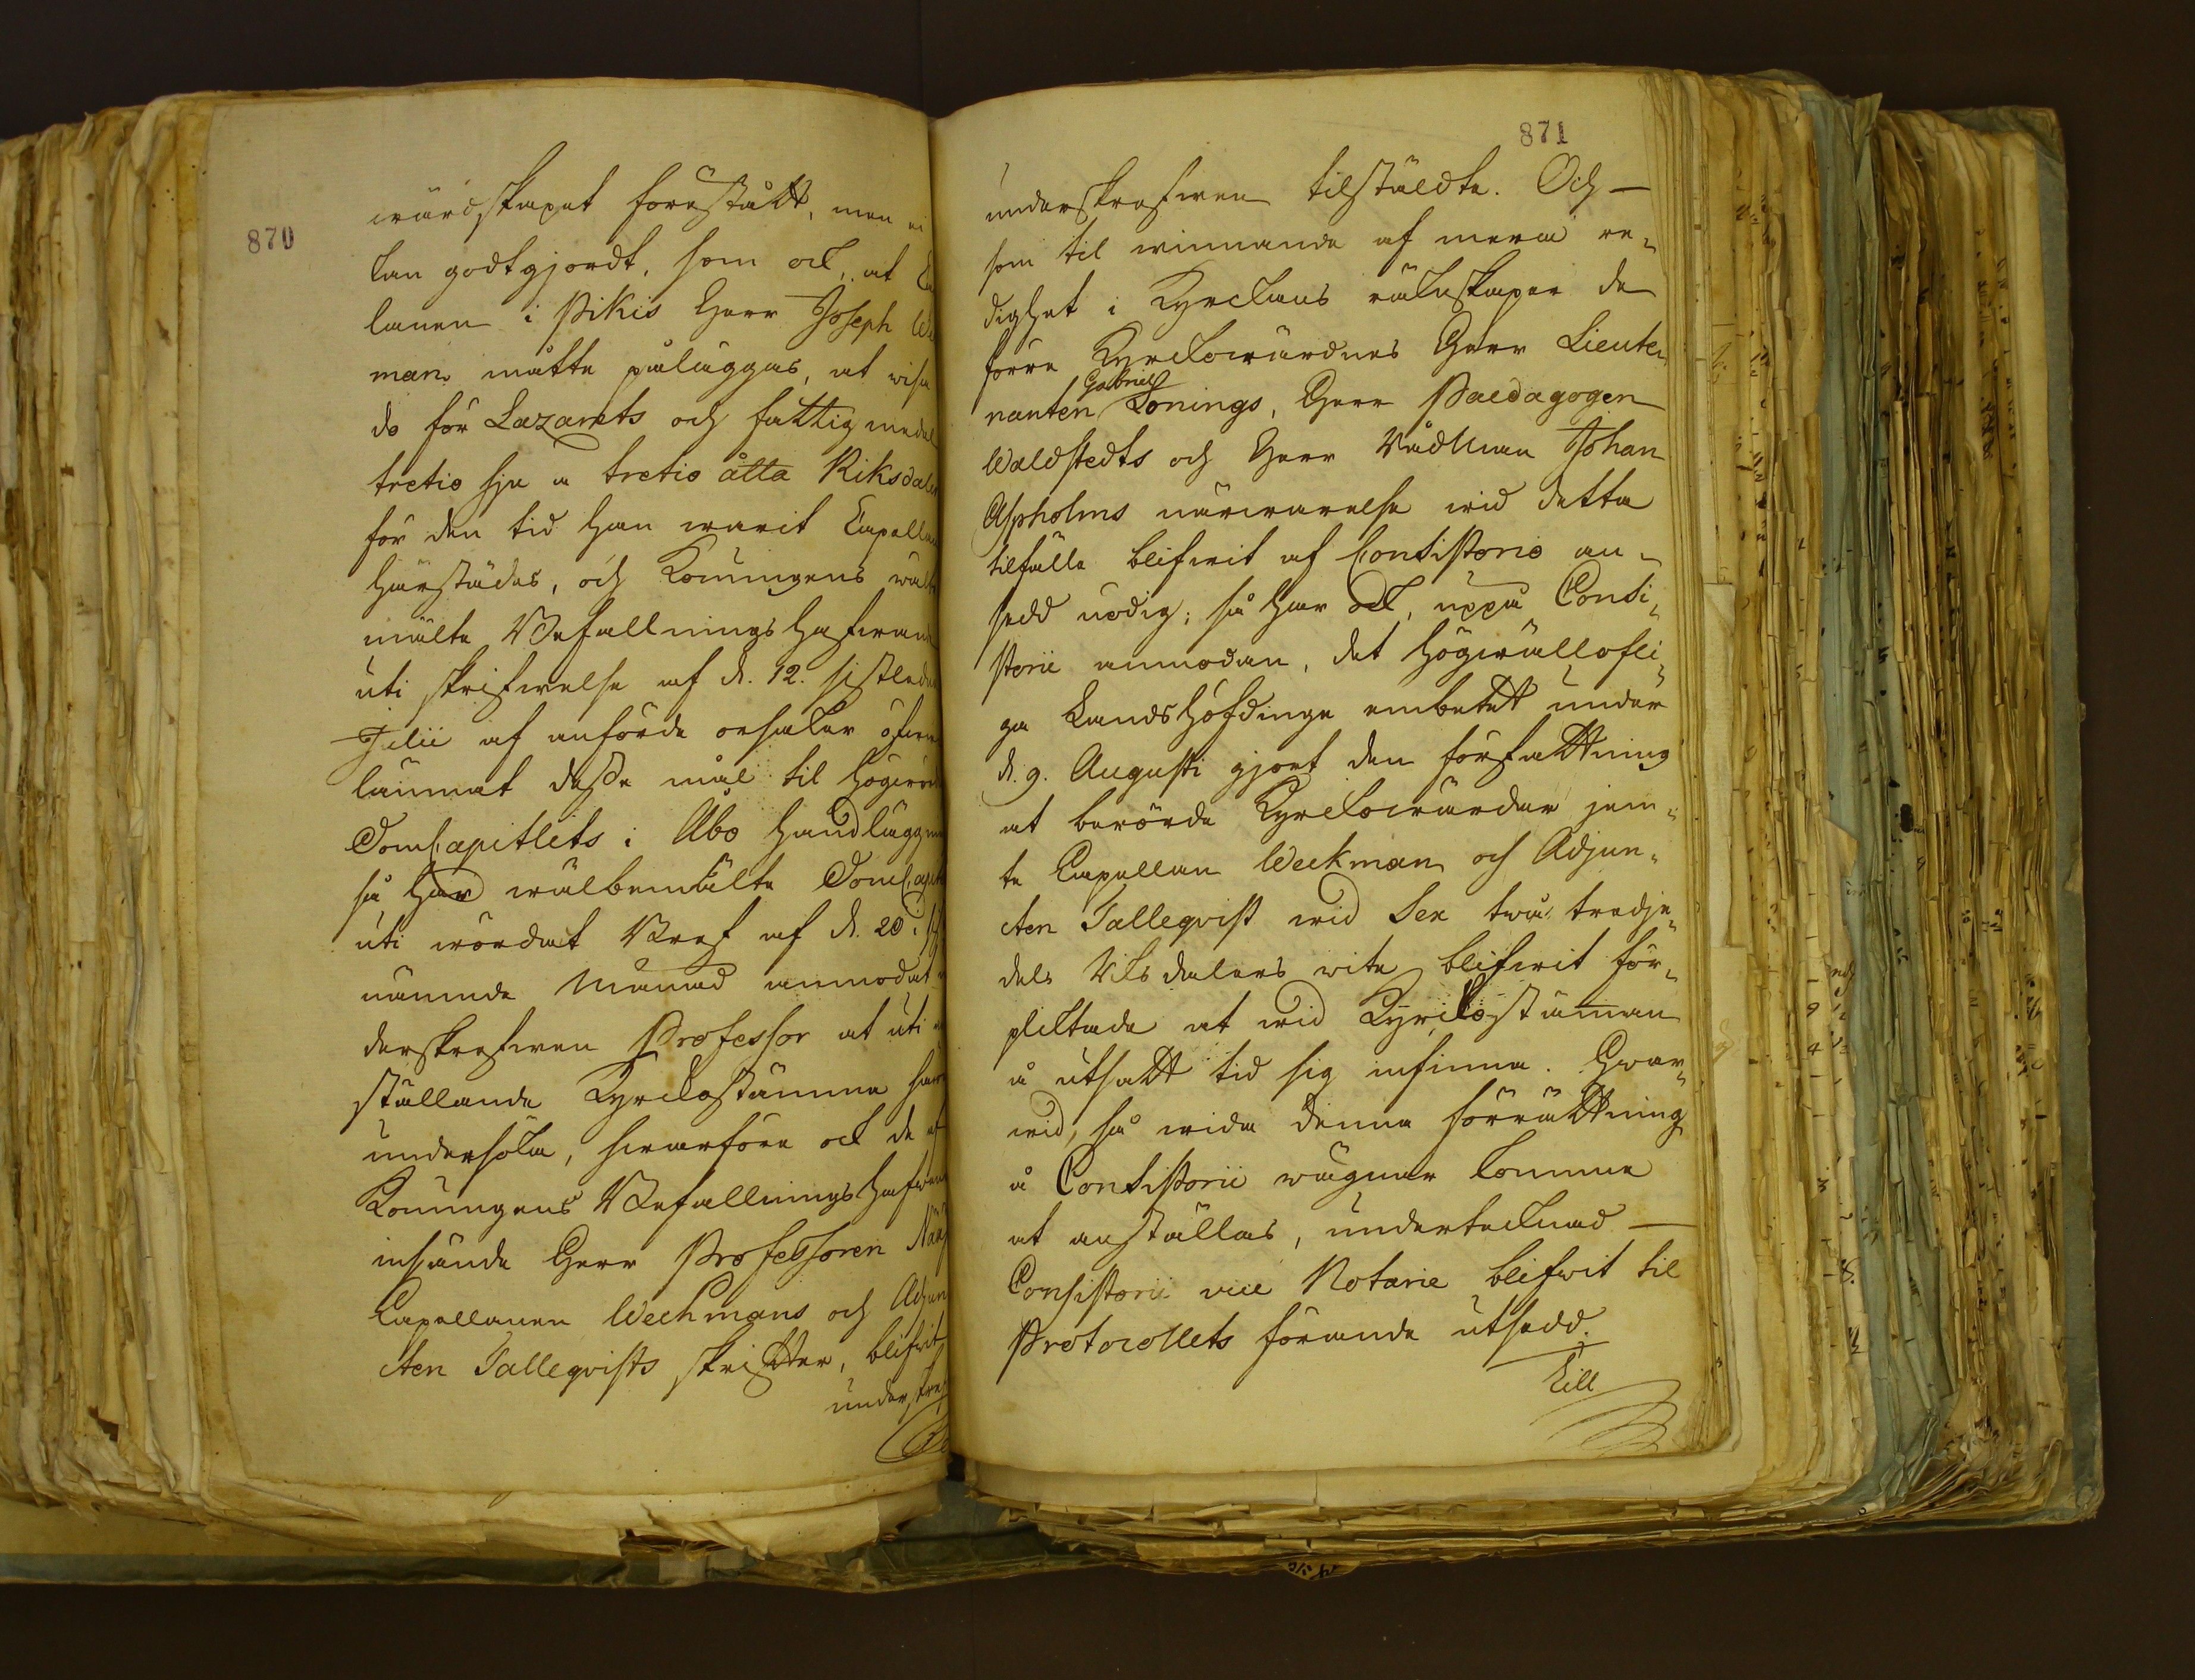 870
wärdskapet förestådt, men
kan godtgjordt, som ock, at
lanen i Pikis Herr Joseph We
man måtte påläggas, at wisa
do för Lazarets och fattig medel
tretio sju a tretio åtta Riksdaler
för den tid han warit Capellan
härstädes, och Konungens wälbe
mälte Befallningshafwande
uti skrifwelse af d. 12. sistleden
Julii af anförde orsaker öfwer
lämnat desse mål til Högwörd
DomCapitlets i Åbo handläggning
så har wälbemälte DomCapitel
uti wördat Bref af d. 20 i sist
nämnde Månad anmodat un
derskrefwen Professor at uti an
ställande Kyrckostämma sådant
undersöka, hwarföre ock de af
Konungens Befallningshafwande
insände Herr Professoren
Capellanen Weckmans och Adjun
cten Talleqvists skrifter, blifwit
underskref
871
underskrefwen tilstäldte. Och —
som til winnande af mera re„
dighet i Kyrckans räkenskaper de
förre Kyrckowärdnes Herr Lieute„
Gabriel
nanten Lonings, Herr Paedagogen
Waldstedts och Herr Rådman Johan
Aspholms närwarelse wid detta
tilfälle blifwit af Consistorio an„
sedd nödig; så har ock, uppå Consi„
storii anmodan, det högwällofli„
ga Landshöfdinge embetet under
d. 9. Augusti gjort den författning
at berörde Kyrckowärdar jem„
te Capellan Weckman och Adjun„
cten Tallequist wid Sex twå tredje„
dels Riksdalers wite blifwit för„
plicktade at wid Kyrckostämman
å utsatt tid sig infinna. Hwar„
wid, så wida denna förrättning
å Consistorii wägnar komme
at anställas, undertecknad —
Consistorii vice Notarie blifwit til
Protocollets förande utsedd.
Till